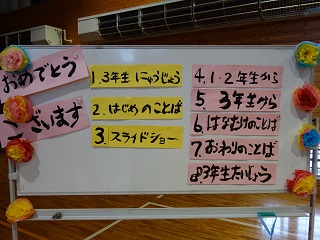 おめでとう
ございます
1.3年生 にゅうじょう
2.はじめのことば
3.スライドショー
4.1・2年生から
5.3年生から
6.はなむけのことば
7.おわりのことば
8.3年生たいじょう